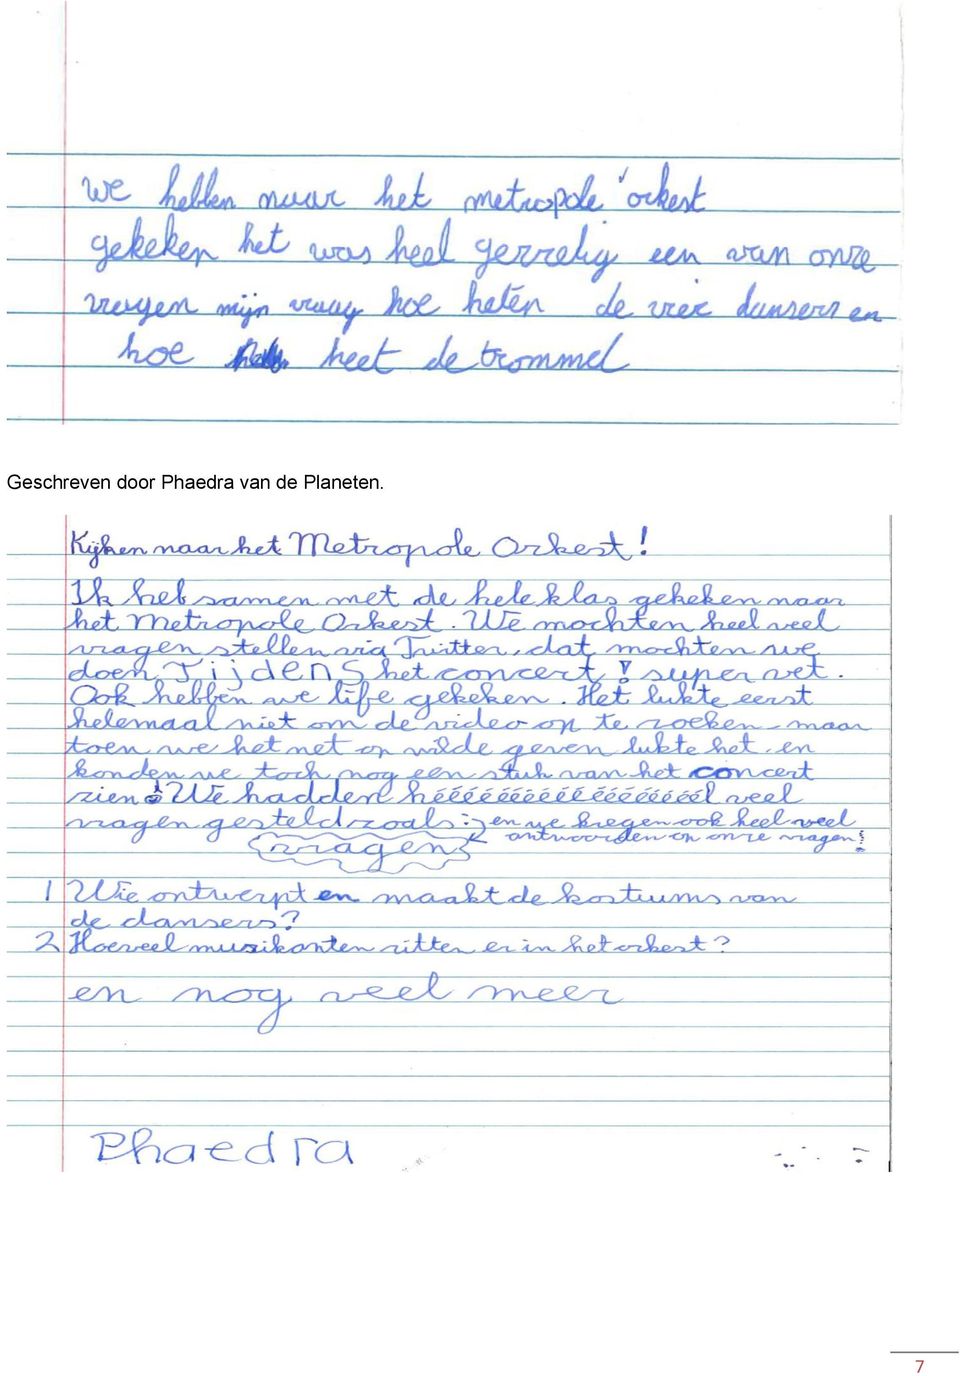 we hebben naar het metropole orkest
gekeken het was heel gezzelig een van onze
vragen mijn vraag hoe heten de vier dansers en
hoe heet de trommel
Geschreven door Phaedra van de Planeten.
Kijken naar het Metropole Orkest!
Ik heb samen met de hele klas gekeken naar
het Metropole Orkest. We mochten heel veel
vragen stellen via Twitter, dat mochten we
doen TijdENS het concert! super vet.
Ook hebben we life gekeken. Het lukte eerst
helemaal niet om de video op te zoeken, maar
toen we het net op wilde geven lukte het, en
konden we toch nog een stuk van het concert
zien! We hadden héééééééééééééééél veel
vragen gesteld zoals: en we kregen ook heel veel
antwoorden op onze vragen!
vragen
1 Wie ontwerpt en maakt de kostuums van
de dansers?
2 Hoeveel muzikanten zitten er in het orkest?
en nog veel meer
Phaedra
7